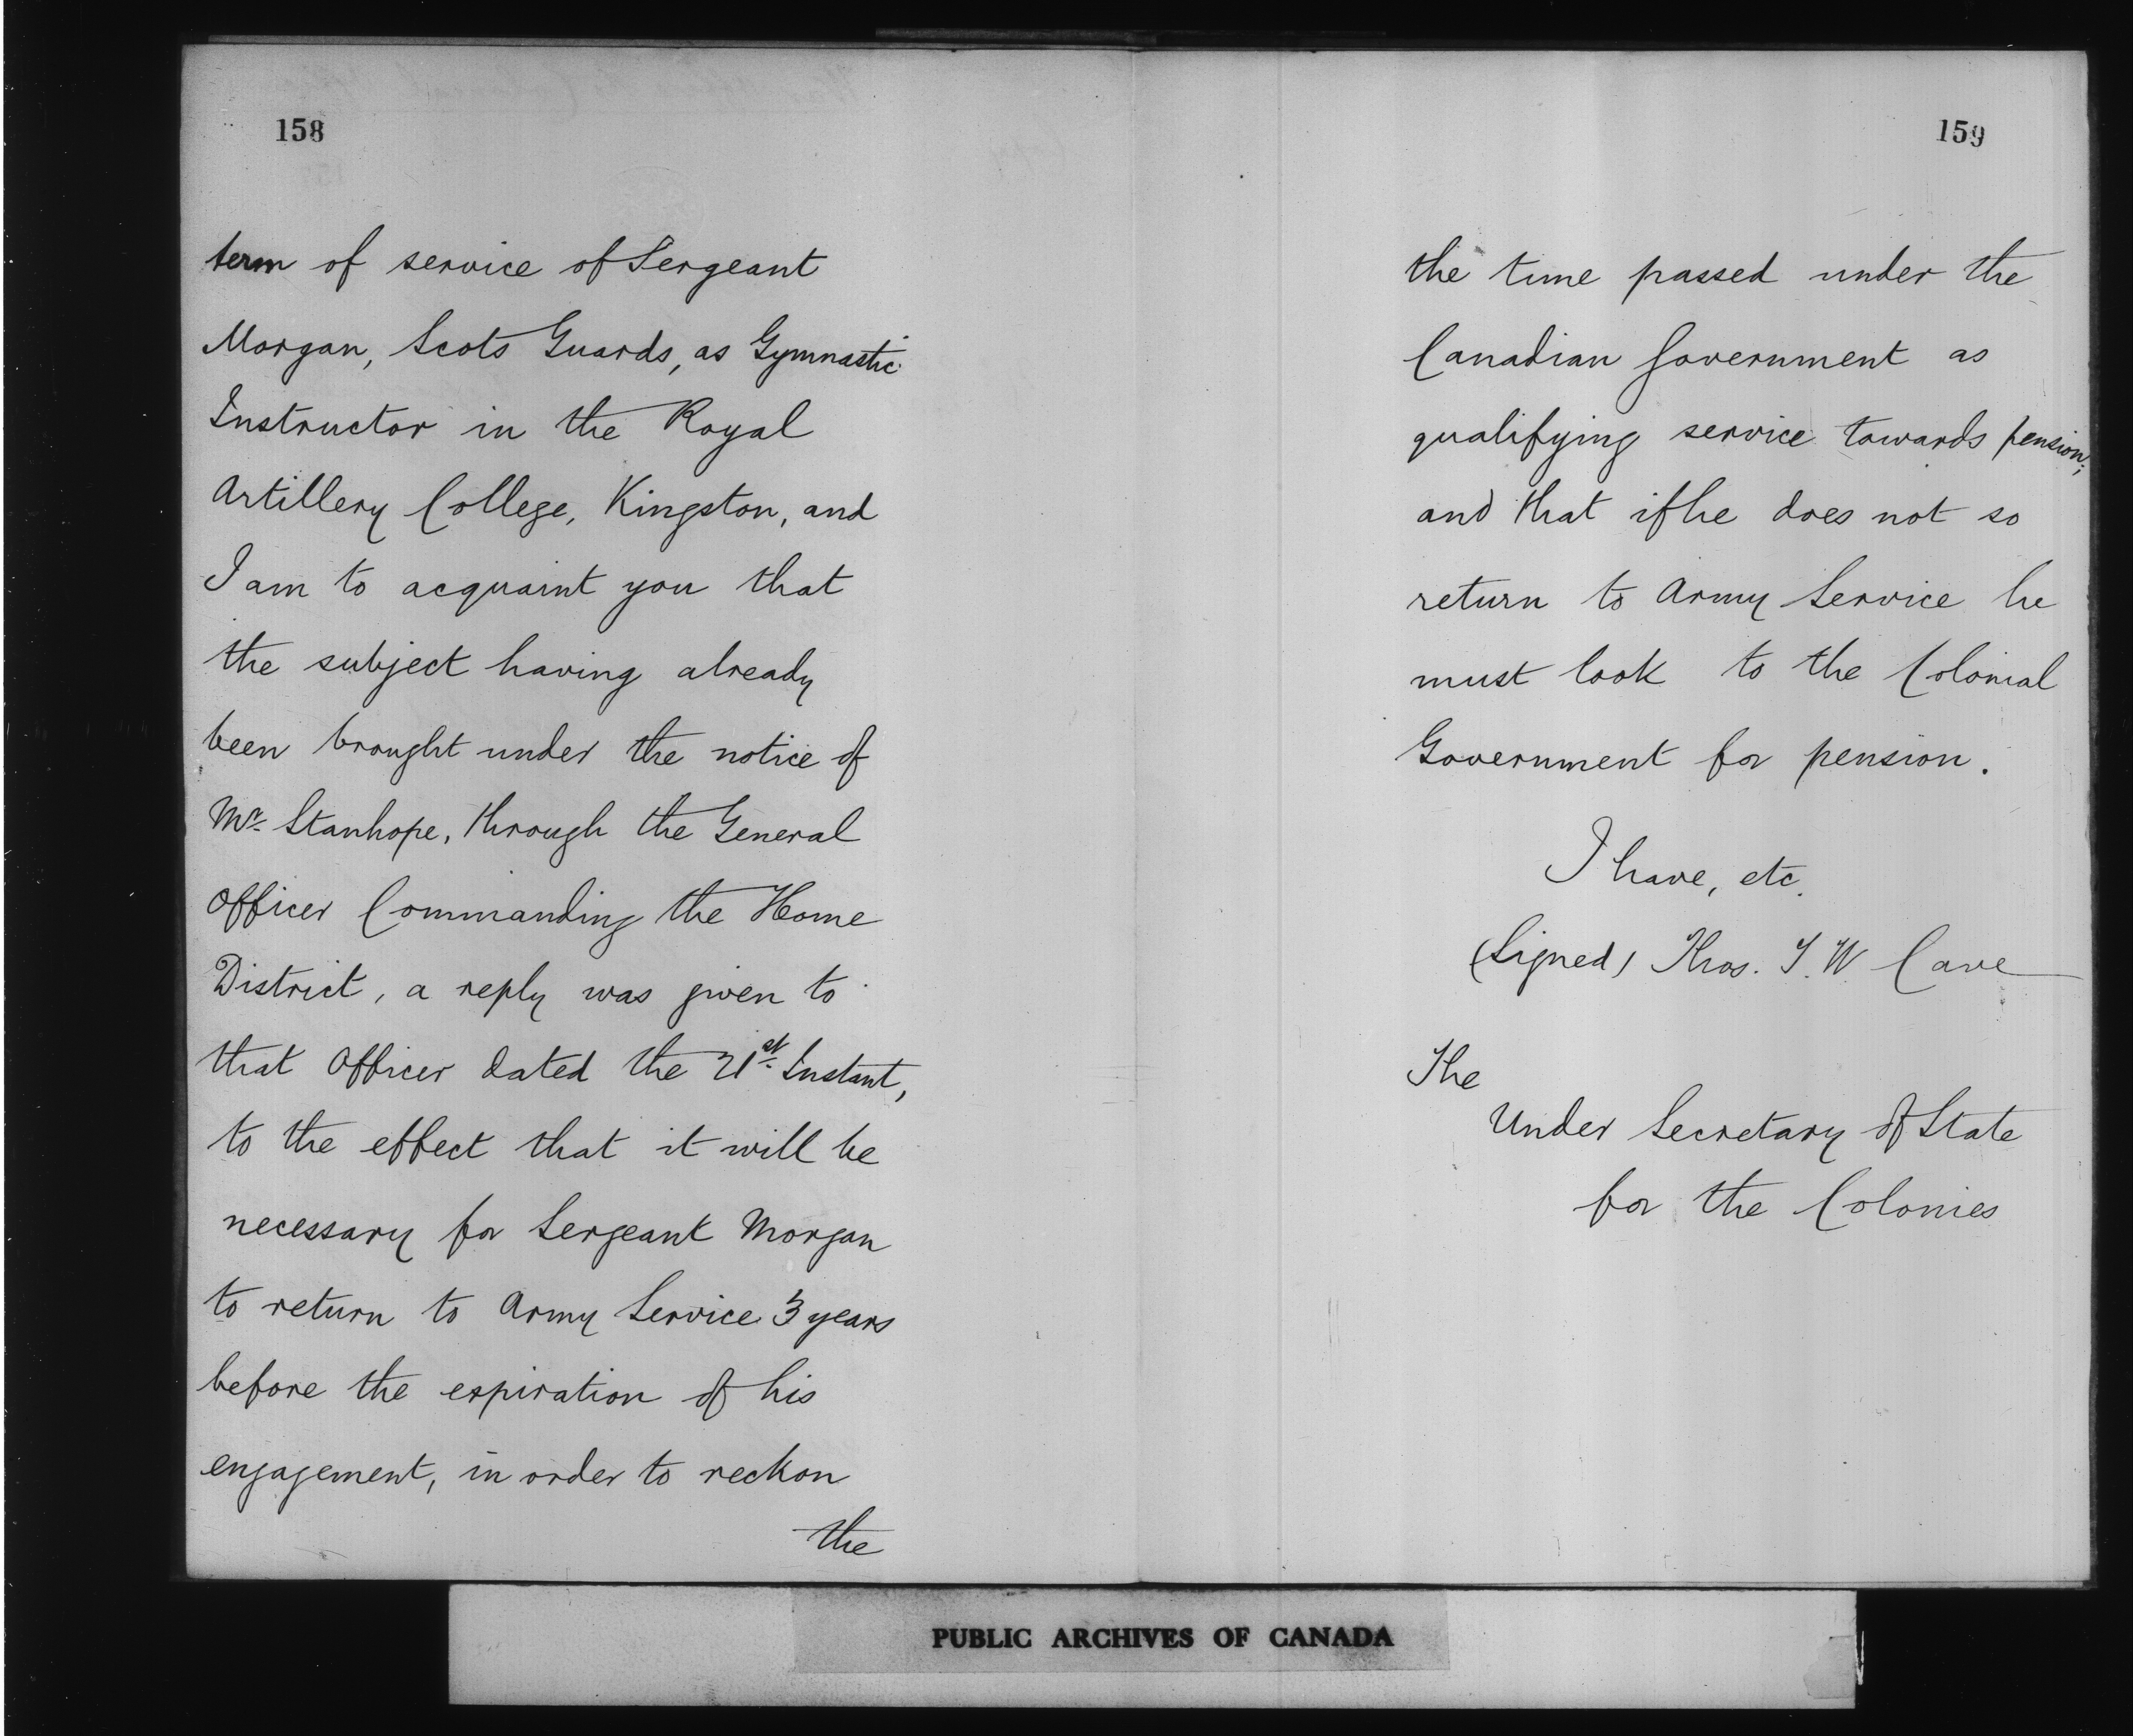 158
term of service of Sergeant
Morgan, Scots Guards, as Gymnastic
Instructor in the Royal
Artillery College, Kingston, and
I am to acquaint you that
the subject having already
been brought under the notice of
Mr. Stanhope, through the General
Officer Commanding the Home
District, a reply was given to
that Officer dated the 21st Instant,
to the effect that it will be
necessary for Sergeant Morgan
to return to Army Service 3 years
before the expiration of his
engagement, in order to reckon
the
159
the time passed under the
Canadian Government as
qualifying service towards pension;
and that if he does not so
return to Army Service he
must look to the Colonial
Government for pension.
I have, etc.
(Signed) Thos. I. W Cave
The
Under Secretary of State
for the Colonies
PUBLIC ARCHIVES OF CANADA